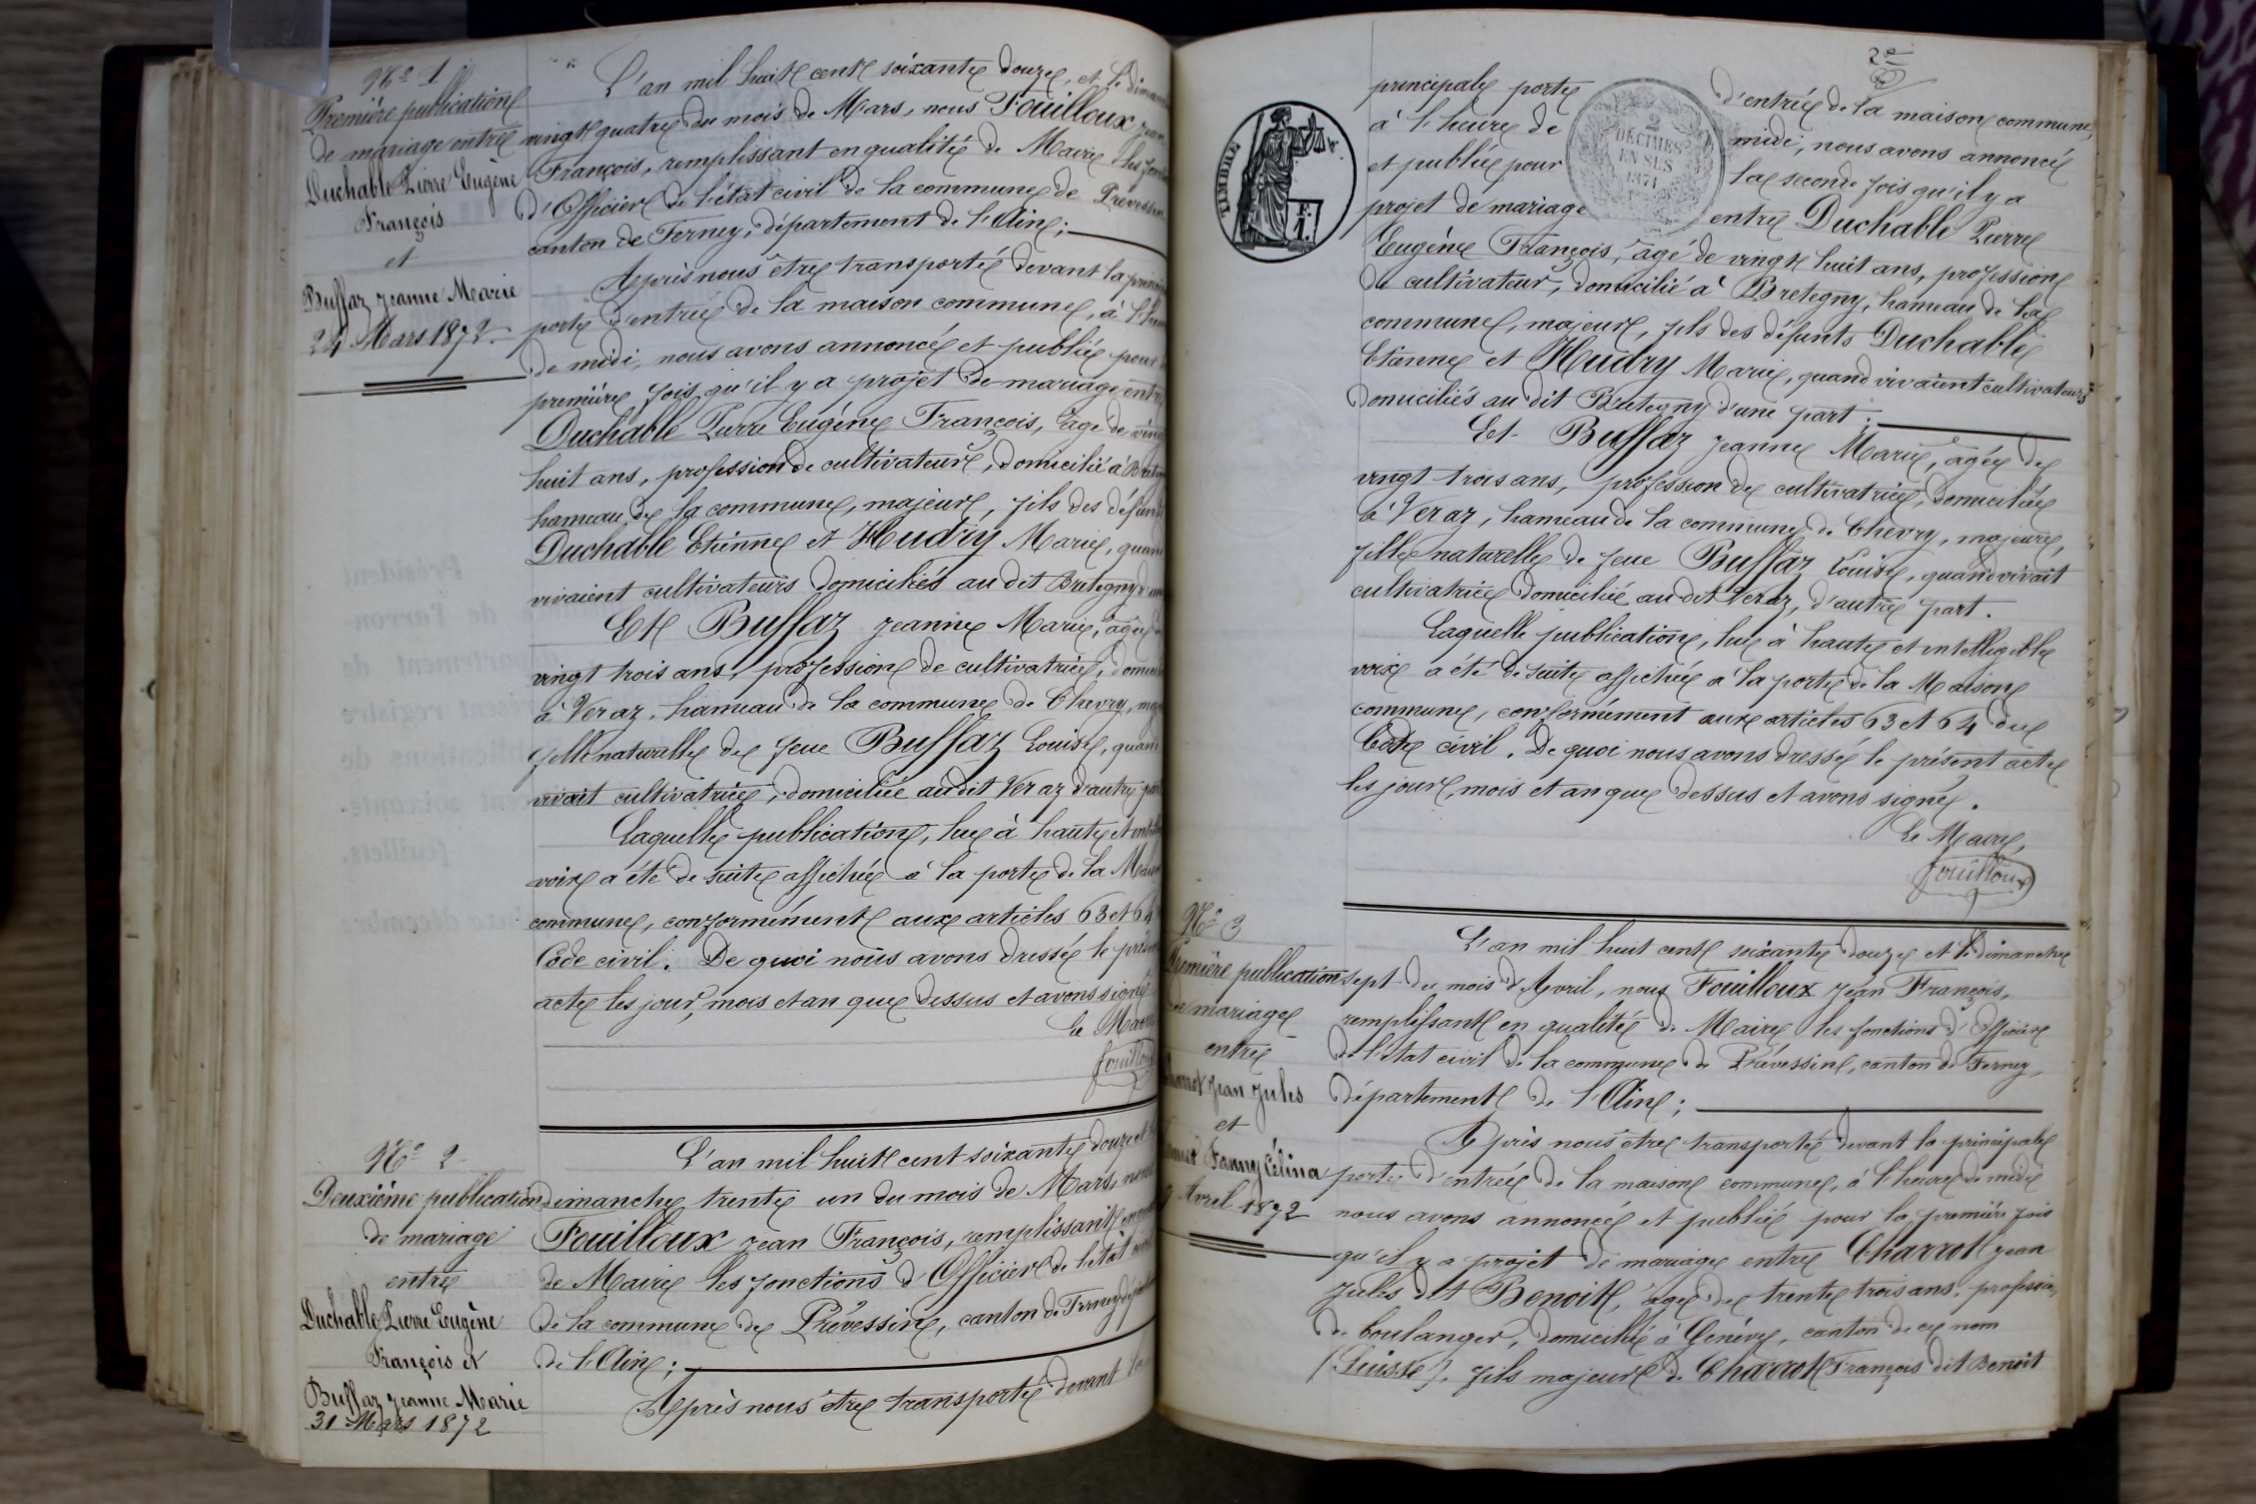 Nº 1
Première publication
de mariage entre
Duchable Pierre Eugène
François
et
Buffaz Jeanne Marie
24 Mars 1872.
L'an mil huit cent soixante douze, et le
vingt quatre du mois de Mars, nous Fouilloux
François, remplissant en qualité de Maire les
d'Officier de l'état civil de la commune de
canton de Ferney, département de l'Ain;
Après nous être transporté devant la
porte d'entrée de la maison commune, à
de midi, nous avons annoncé et publié pour
première fois qu'il y a projet de mariage entre
Duchable Pierre Eugène François, âgé de
huit ans, profession de cultivateur, domicilié à
hameau de la commune, majeur, fils des
Duchable Etienne et Hudry Marie,
vivaient cultivateurs domiciliés au dit Bretegny
Et Buffaz Jeanne Marie, âgée
vingt trois ans, profession de cultivatrice,
à Veraz, hameau de la commune de Chevry,
fille naturelle de feue Buffaz Louise,
vivait cultivatrice, domiciliée audit Veraz d'autre
Laquelle publication, lue à haute et
voix a été de suite affichée à la porte de la
commune, conformément aux articles 63 et 64
Code civil. De quoi nous avons dressé le
acte les jour, mois et an que dessus et avons signé
Le
Nº 2
Deuxième publication
de mariage
entre
Duchable Pierre Eugène
François et
Buffaz Jeanne Marie
31 Mars 1872
L'an mil huit cent soixante douze
dimanche trente un du mois de Mars,
Fouilloux Jean François, remplissant
de Maire les fonctions d'Officier de l'état
de la commune de Prévessin, canton de Ferney
de l'Ain;
Après nous être transporté devant
2e
principale porte d'entrée de la maison commune,
à l'heure de midi, nous avons annoncé
et publié pour la seconde fois qu'il y a
projet de mariage entre Duchable Pierre
TIMBRE
F.
1.
2
DÉCIMES
EN SUS
1871
Eugène François, âgé de vingt huit ans, profession
de cultivateur, domicilié à Bretegny, hameau de la
commune, majeur, fils des défunts Duchable
Etienne et Hudry Marie, quand vivaient cultivateurs
domiciliés au dit Bretegny d'une part.
Et Buffaz Jeanne Marie, âgée de
vingt trois ans, profession de cultivatrice, domiciliée
à Veraz, hameau de la commune de Chevry, majeure,
fille naturelle de feue Buffaz Louise, quand vivait
cultivatrice domiciliée au dit Veraz, d'autre part.
Laquelle publication, lue à haute et intelligible
voix a été de suite affichée à la porte de la Maison
commune, conformément aux articles 63 et 64 du
Code civil. De quoi nous avons dressé le présent acte
les jour, mois et an que dessus et avons signé.
Le Maire,
Fouilloux
Nº 3
Première publication
de mariage
entre
Jean Jules
et
Fanny Célina
Avril 1872
L'an mil huit cent soixante douze et le dimanche
sept du mois d'Avril, nous Fouilloux Jean François,
remplissant en qualité de Maire les fonctions d'Officier
de l'état civil de la commune de Prévessin, canton de Ferney,
département de l'Ain;
Après nous être transporté devant la principale
porte d'entrée de la maison commune, à l'heure de midi
nous avons annoncé et publié pour la première fois
qu'il y a projet de mariage entre Charrot Jean
Jules dit Benoit, âgé de trente trois ans, profession
de boulanger, domicilié à Genève, canton de ce nom
(Suisse), fils majeur de Charrot François dit Benoit